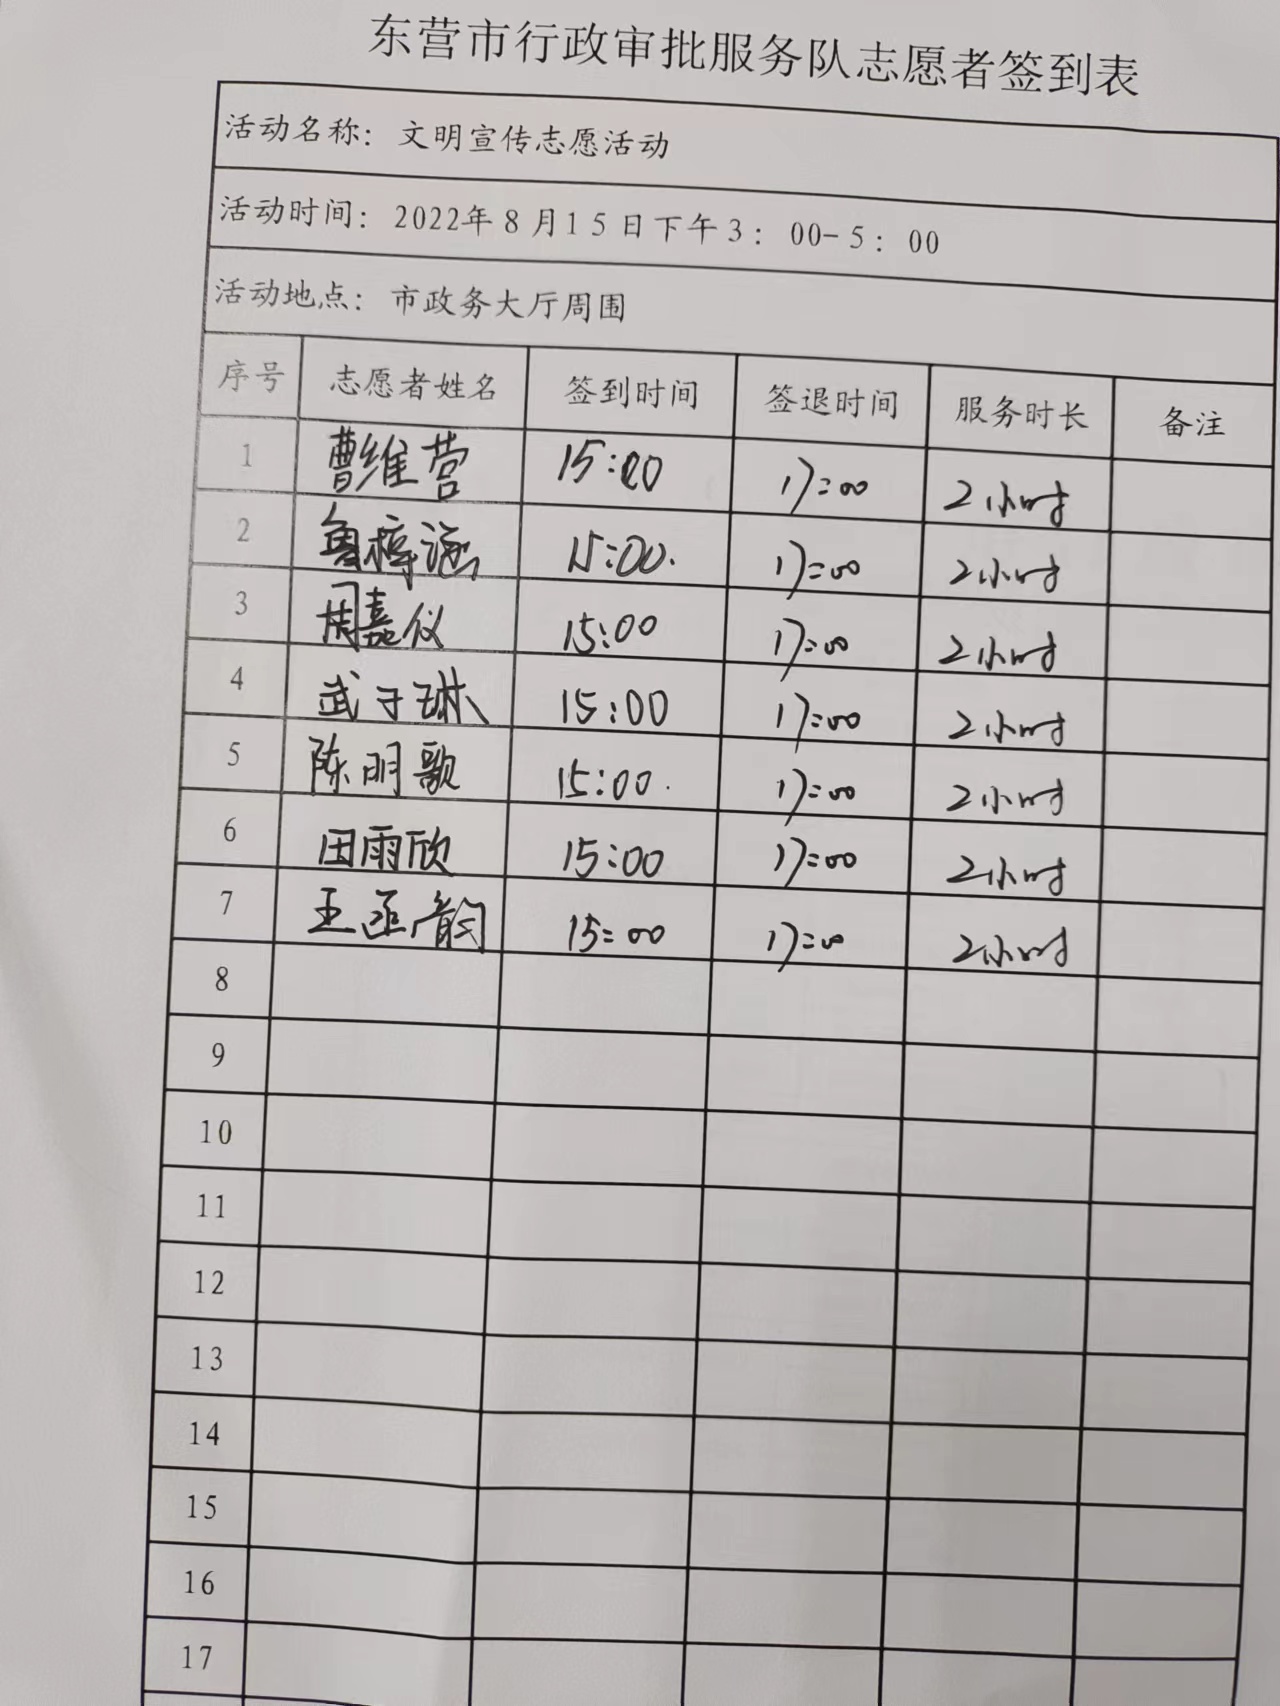 东营市行政审批服务队志愿者签到表
活动名称：文明宣传志愿活动
活动时间：2022年8月15日下午3：00-5：00
活动地点：市政务大厅周围
序号 志愿者姓名 签到时间 签退时间 服务时长 备注
1 曹维营 15:00 17:00 2小时
2 鲁梓涵 15:00. 17:00 2小时
3 周嘉仪 15:00 17:00 2小时
4 武于琳 15:00 17:00 2小时
5 陈明歌 15:00. 17:00 2小时
6 田雨欣 15:00 17:00 2小时
7 王丞韵 15:00 17:00 2小时
8
9
10
11
12
13
14
15
16
17